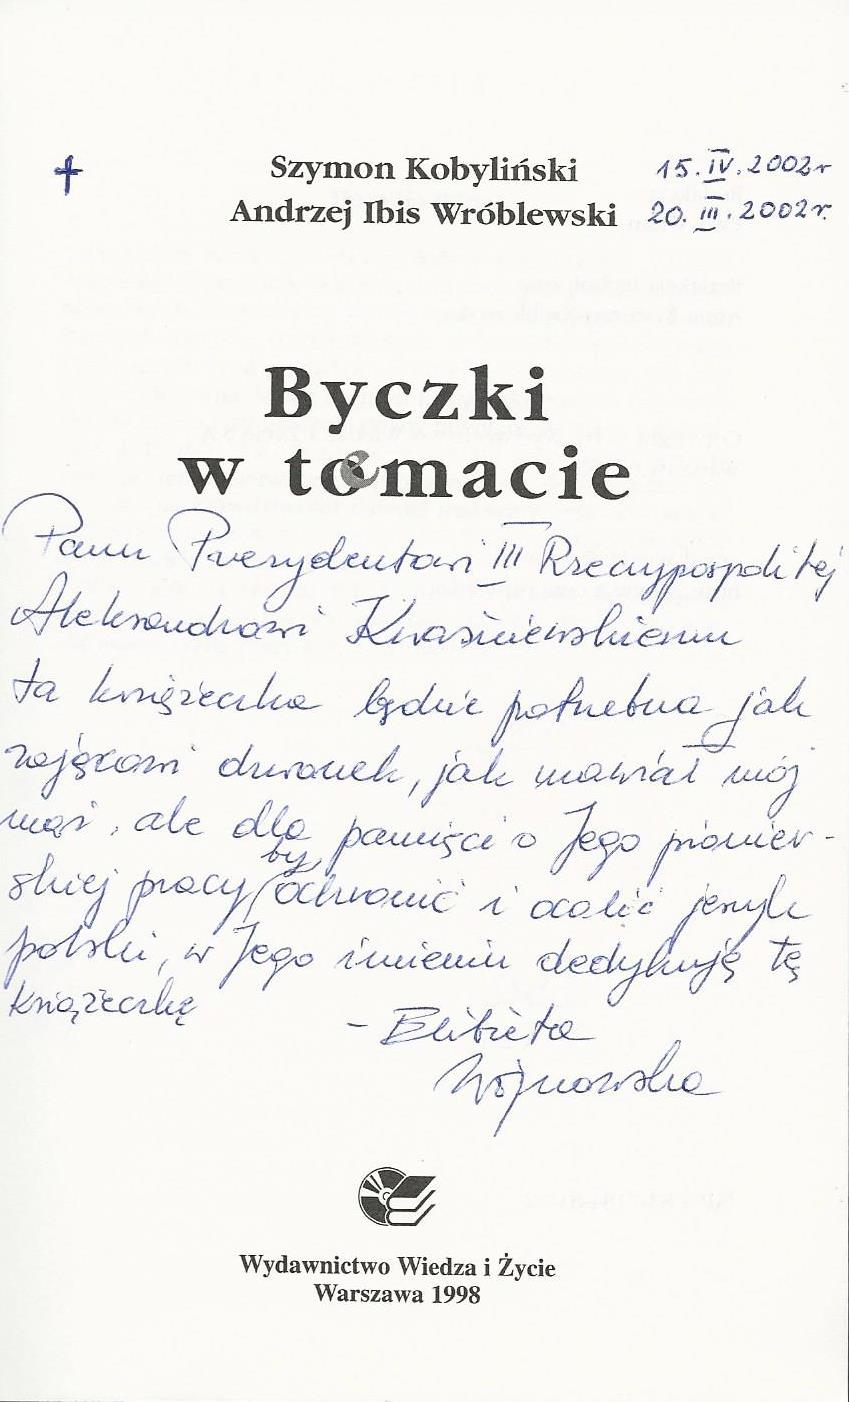 † Szymon Kobyliński 15.IV.2002r
Andrzej Ibis Wróblewski 20.III.2002r.
Byczki
w temacie
Panu Prezydentowi III Rzeczypospolitej
Aleksandrowi Kwaśniewskiemu
ta książeczka będzie potrzebna jak
zającowi dzwonek, jak mawiał mój
mąż, ale dla pamięci o Jego pionier-
skiej pracy by ochronić i ocalić język
polski, w Jego imieniu dedykuję tę
książeczkę
- Elżbieta
Wojnowska
Wydawnictwo Wiedza i Życie
Warszawa 1998